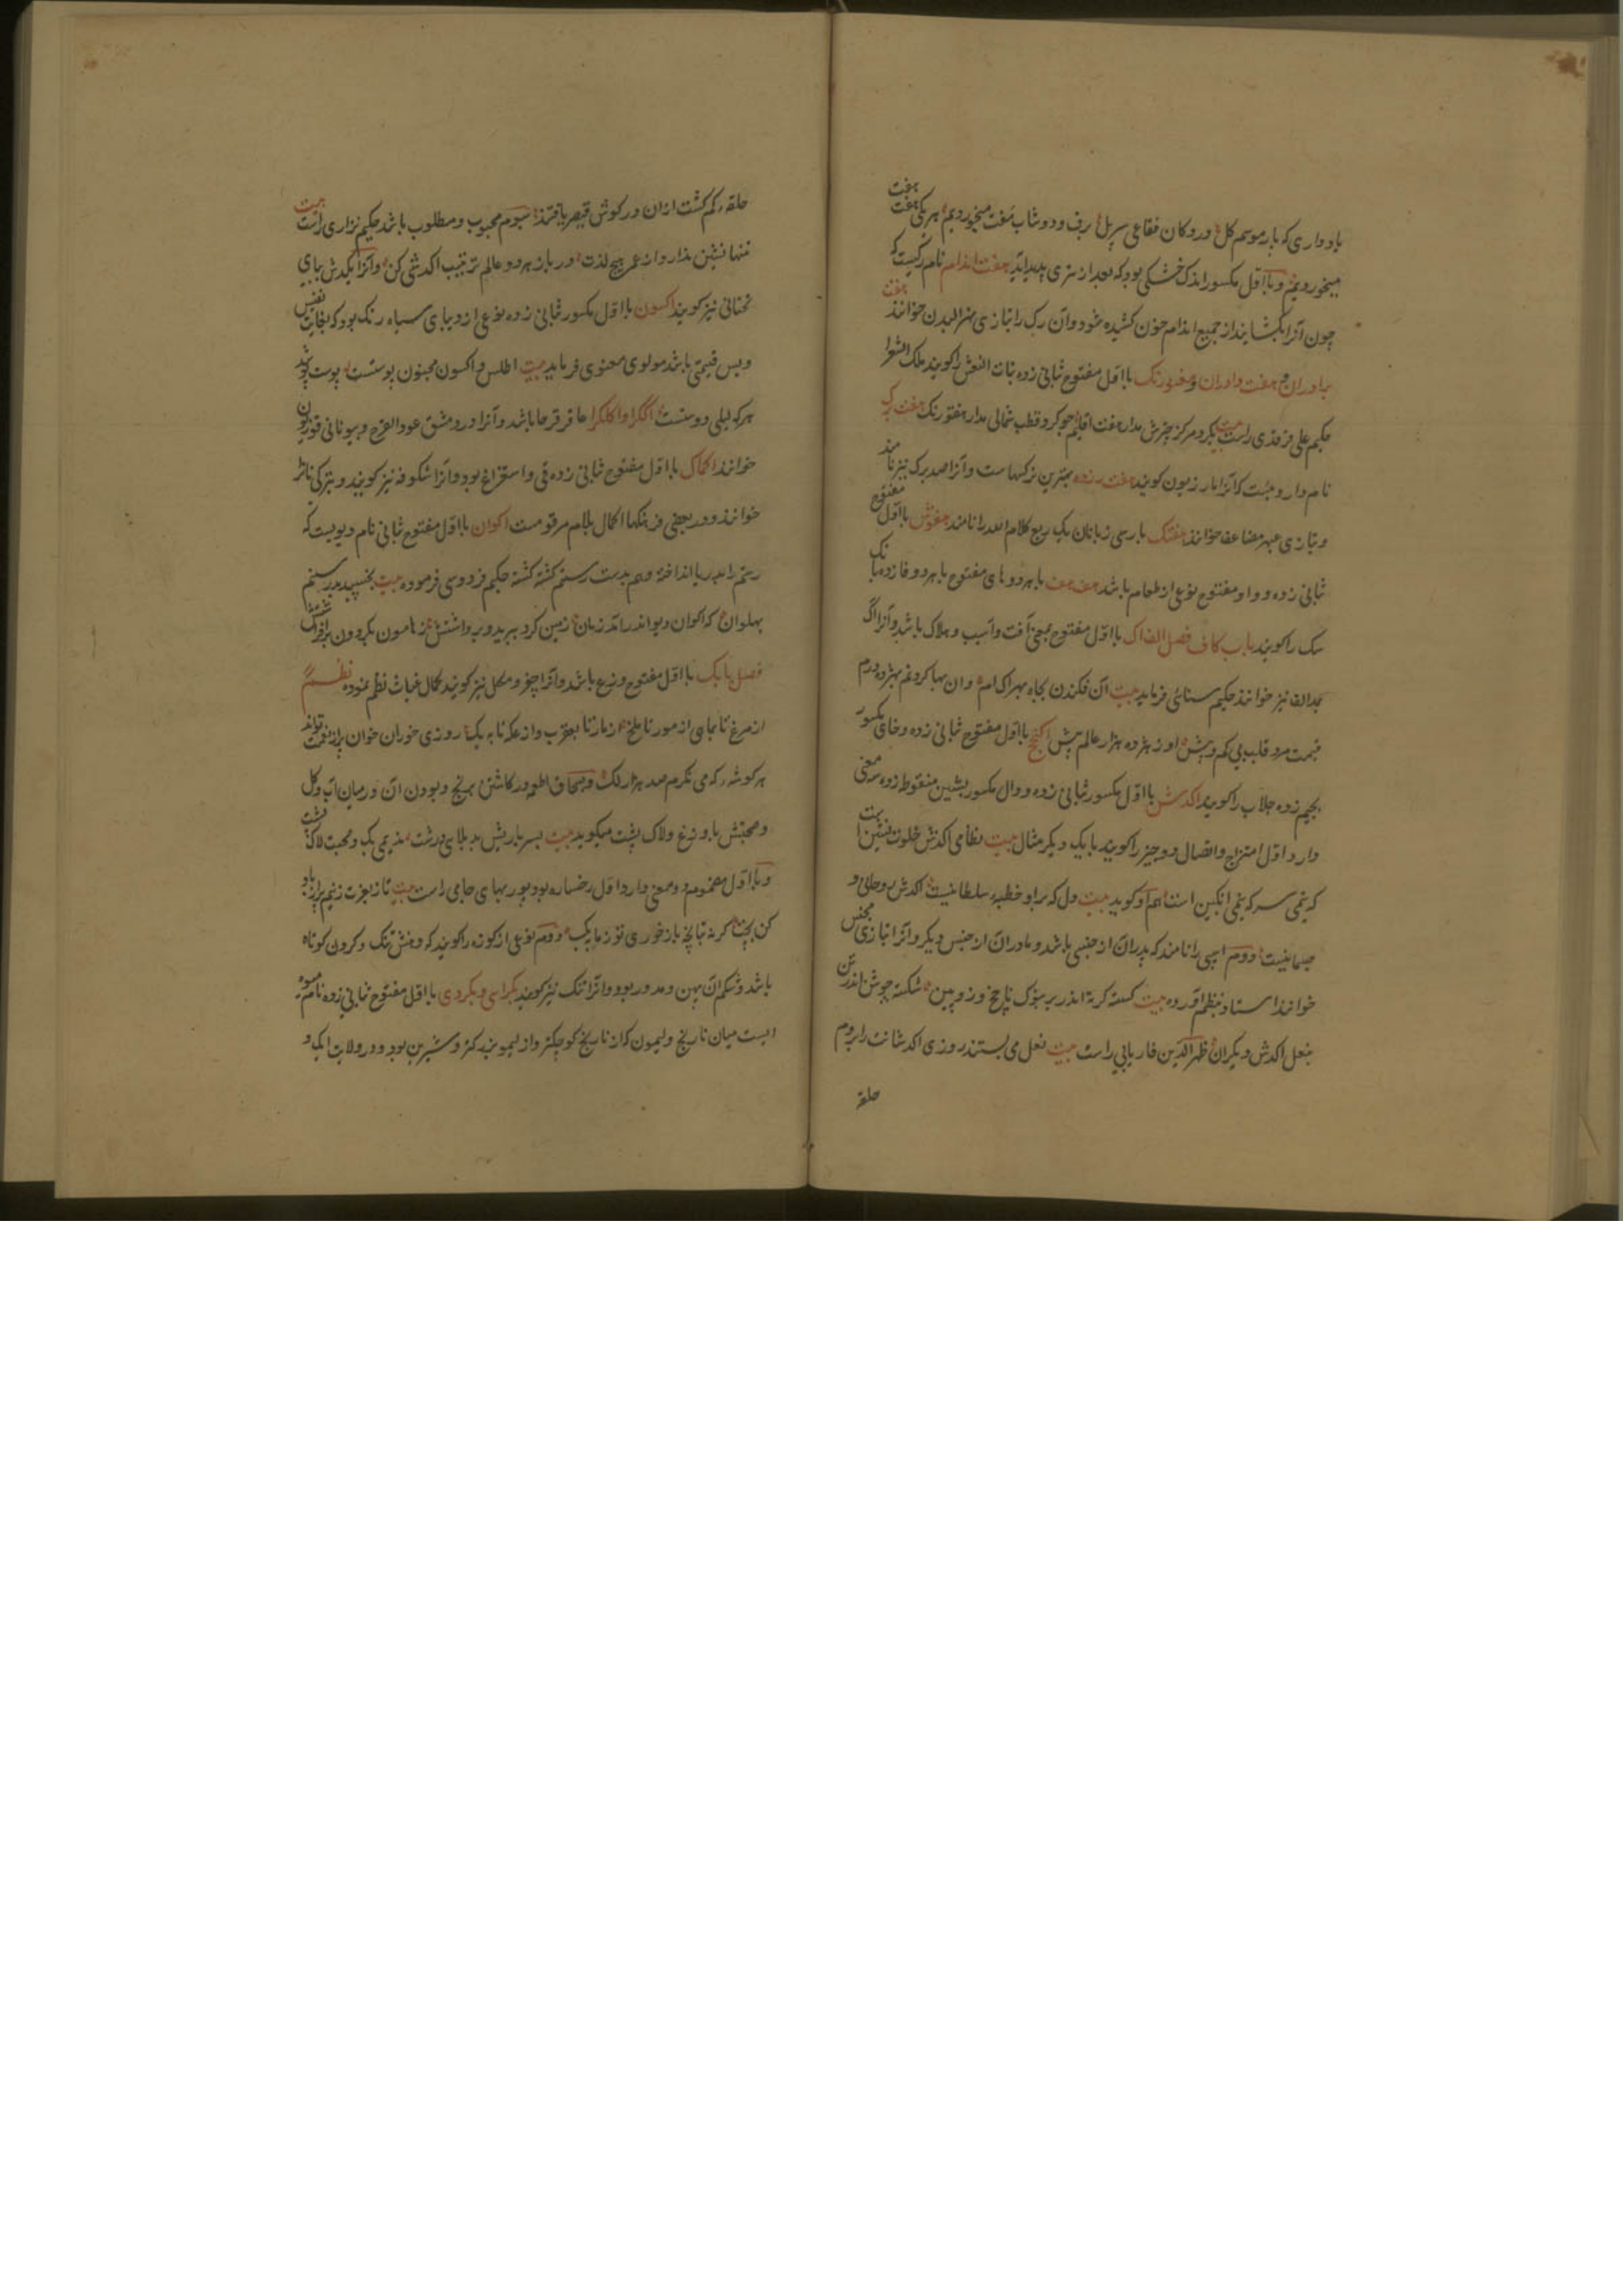 یاد داری که بار موسم گل در دکان فقاعی سر پل برف و دوشاب هفت میخوردیم هر یکی هفت هفت
میخوردیم و با اول مکسور اندک خشکی بود که بعد از تری پدید آید هفت اندام نام رگیست که
چون آنرا بگشایند از جمیع اندام خون کشیده شود و آن رگ را بتازی نهر البدن خوانند هفت
برادران و هفت داوران و هفتورنگ با اول مفتوح ثانی زده بنات النعش را گویند ملک الشعرا
حکیم علی فرقدی راست بیت بگرد مرکز چترش مدار هفت اقلیم چو گرد قطب شمالی مدار هفتورنگ هفت برگ
نام داروییست که آنرا مازریون گویند هفت رزه بهترین بزکهاست و آنرا صد برگ نیز نامند
و بتازی عبهر مضاعف خوانند هفتک پارسی زبانان یک ربع کلام الله را نامند هفوش با اول مفتوح
ثانی زده و واو مفتوح نوعی از طعام باشد هف هف با هر دو های مفتوح با هر دو فا زده بانگ
سک را گویند باب کاف فصل الف اک با اول مفتوح بمعنی آفت و آسیب و هلاک باشد و آنرا آک
بمد الف نیز خوانند حکیم سنائی فرماید بیت آن فکندن بچاه بهر اک ام وان بها کردنم بهژده درم
قیمت مرد قلب بی کم و بیش او ز هژده هزار عالم بیش اکخ با اول مفتوح ثانی زده و خای مکسور
بجیم زده جلاب را گویند اکدش با اول مکسور ثانی زده و دال مکسور بشین منقوط زده سه معنی
دارد اول امتزاج و اتصال دو چیز را گویند با یک دیگر مثال بیت نظامی اکدش خلوت نشین است
که نیمی سرکه نیمی انگبین است هم او گوید بیت دل که برو خطبه سلطانیست اکدش روحانی و
جسمانیست دوم اسپی را نامند که پدر آن از جنسی باشد و مادر آن از جنس دیگر و آنرا بتازی مجنس
خوانند استاد نظم آورده بیت کسسته کرته اندر بر سبوک ناچخ و زوبین شکسته جوشن اندر تن
بنعل اکدش دیگران ظهیر الدین فاریابی راست بیت نعل می بستند روزی اکدشانت را بروم
حلقه
حلقه کم گشت ازان در گوش قیصر یافتند سوم محبوب و مطلوب باشد حکیم نزاری راست بیت
تنها نشین مدار و از عمر هیچ لذت در باز هر دو عالم ترتیب اکدشی کن و آنرا یکدش بیای
تحتانی نیز گویند اکسون با اول مکسور ثانی زده نوعی از دیبای سیاه رنگ بود که بغایت نفیس
و بس قیمتی باشد مولوی معنوی فرماید بیت اطلس و اکسون مجنون پوستست پوست پوشد
هر که لیلی دوستست اکگرا و اکلکرا عاقرقرحا باشد و آنرا در دمشق عود القرح و بیونانی قوریون
خوانند اکماک با اول مفتوح ثانی زده قی و استفراغ بود و آنرا شکوفه نیز گویند و بترکی نانرا
خوانند و در بعضی فرهنگها اکمال بلام مرقومست اکوان با اول مفتوح ثانی نام دیویست که
رستم را بدریا انداخته و هم بدست رستم کشته گشته حکیم فردوسی فرموده بیت بخسپید بدر رستم
پهلوان که اکوان دیو اندر آمد زمان زمین گرد ببرید و برداشتش ز هامون بگردون برافراشتش
فصل با بک با اول مفتوح وزغ باشد و آنرا چغز و مکل نیز گویند کمال غیاث نظم نموده نظم
از مرغ تا بماهی از مور تا ملخ از مار تا بعقرب و از عکه تا به بک روزی خوران خوان پر از نعمت تواند
هر گوشه که می نگرم صد هزار لک و بسحاق اطعمه در کاشتن برنج و بودن آن در میان آب و گل
و صحبتش با وزغ و لاک پشت میگوید بیت بسر باریش بد بلای درشت ندیمی بک و صحبت لاک پشت
و با اول مضموم دو معنی دارد اول رخساره بود پور بهای جامی راست بیت تا ز بهرت زنیم پر از باد
کن بچنا کرنه تبانچه باز خوری تو ز ما به بک دوم نوعی از کوزه را گویند که دهنش تنگ و گردن کوتاه
باشد و شکم آن پهن و مدور بود و آنرا تنگ نیز گویند بکرایی و بکردی با اول مفتوح ثانی زده نام میوه
ایست میان نارنج و لیمون که از نارنج کوچکتر و از لیمو بزرگتر و شیرین بود و در ولایت ایک و